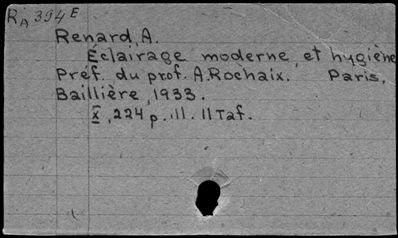 RA 394E
Renard, A.
Éclairage moderne et hygiène
Préf. du prof. A. Rochaix. Paris,
Baillière, 1933.
X, 224 p. ill. 11 Taf.